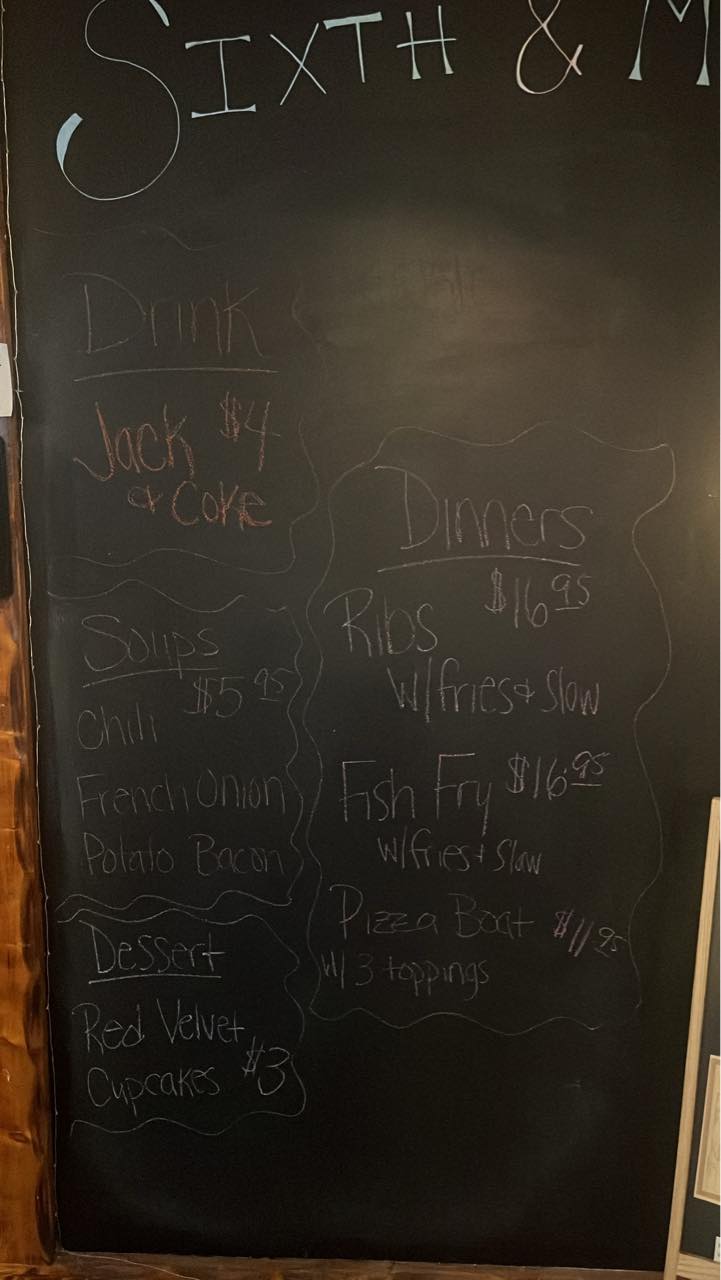 SIXTH & M
Drink
Jack $4
& Coke
Soups
$5 95
Chili
French Onion
Potato Bacon
Dessert
Red Velvet
Cupcakes $3
Dinners
Ribs $16 95
w/fries & Slow
Fish Fry $16 95
w/fries & Slaw
Pizza Boat $11 95
w/ 3 toppings